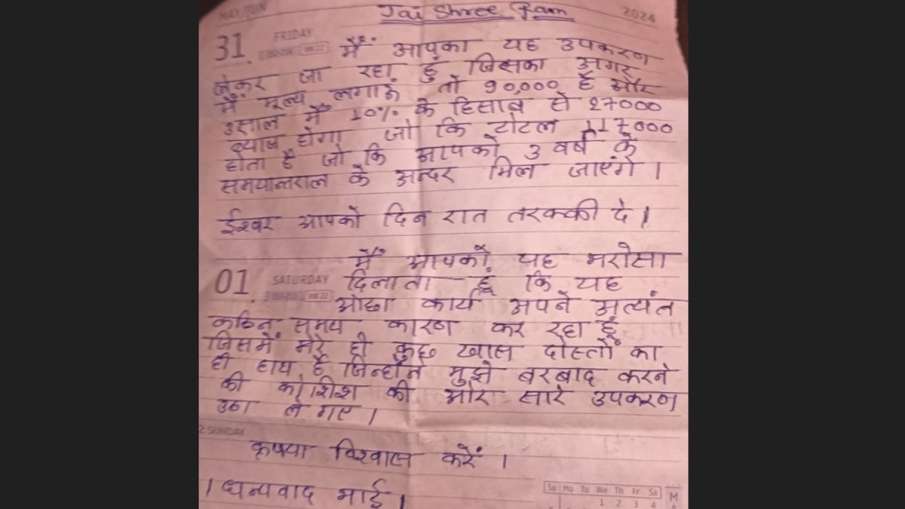 Jai Shree Ram
2024
31 FRIDAY
मैं आपका यह उपकरण
लेकर जा रहा हूं जिसका अगर
मैं मूल्य लगाऊं तो 90,000 है और
3साल में 10% के हिसाब से 27000
ब्याज होगा जो कि टोटल 117000
होता है जो कि आपको 3 वर्ष के
समयान्तराल के अन्दर मिल जाएंगे।
ईश्वर आपको दिन रात तरक्की दे।
मैं आपको यह भरोसा
01 SATURDAY दिलाता हूं कि यह
ओछा कार्य अपने अत्यंत
कठिन समय कारण कर रहा हूं
जिसमें मेरे ही कुछ खास दोस्तों का
ही हाथ है जिन्होंने मुझे बरबाद करने
की कोशिश की और सारे उपकरण
उठा ले गए।
2 SUNDAY
कृपया विश्वास करें।
। धन्यवाद भाई।
Su Mo Tu We Th Fr Sa M